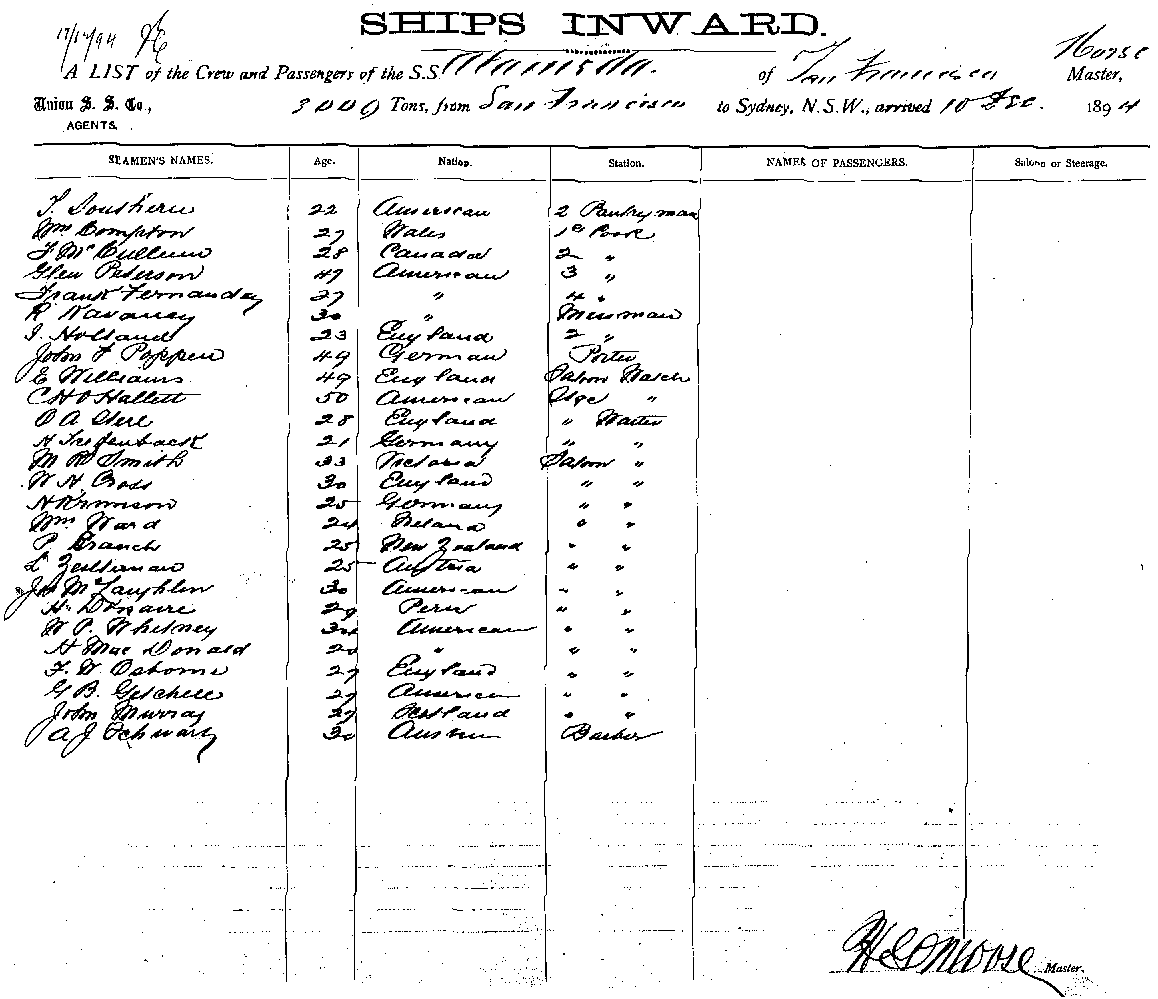 SHIPS INWARD.
17/12/94
Morse
A LIST of the Crew and Passengers of the S.S. Alameda. of San Francisco Master,
Union S. S. Co., 3000 Tons, from San Francisco to Sydney, N.S.W., arrived 10 Dec. 1894
AGENTS.
SEAMEN'S NAMES. Age. Nation. Station. NAMES OF PASSENGERS. Saloon or Steerage.
T. Southern 22 American 2 Pantryman
Wm Compton 27 Wales 1st Cook
F McCullum 28 Canada 2 "
Glen Peterson 47 American 3 "
Frank Fernandez 27 " 4 "
R 30 " Messman
J. Holland 23 England 2 "
John F Poppen 49 German Porter
E Williams 49 England Saloon Watch
C H O Hallett 50 American Stge "
O A Gere 28 England " Waiter
H Tiefenback 21 Germany " "
M R Smith 33 Victoria Saloon "
W. H. Cross 30 England " "
H 25 Germany " "
Wm Ward 24 Ireland " "
P. Branch 25 New Zealand " "
L Zeltaman 25 Austria " "
Js McLaughlin 30 American " "
H. Donaire 29 Peru " "
W P. Whitney 34 American " "
H Mac Donald 24 " " "
F. W. Osborne 27 England " "
G B. Getchell 27 American " "
John Murray 27 Scotland " "
A J Schwartz 30 Austria Barber
Master.